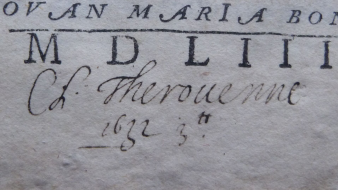 OVAN MARIA BON
M D LIII
Ch. Therouenne
1632 3tt